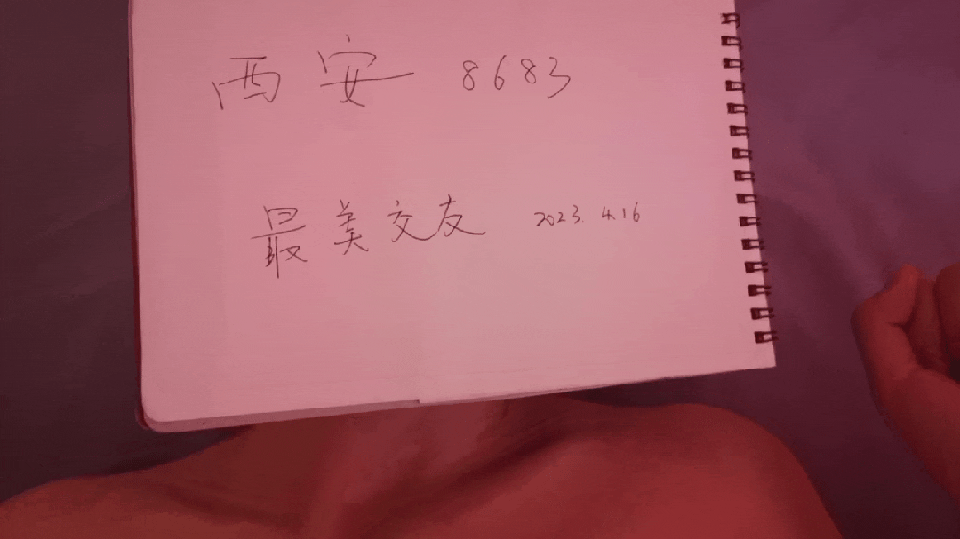 西安 8683
最美交友 2023.4.16